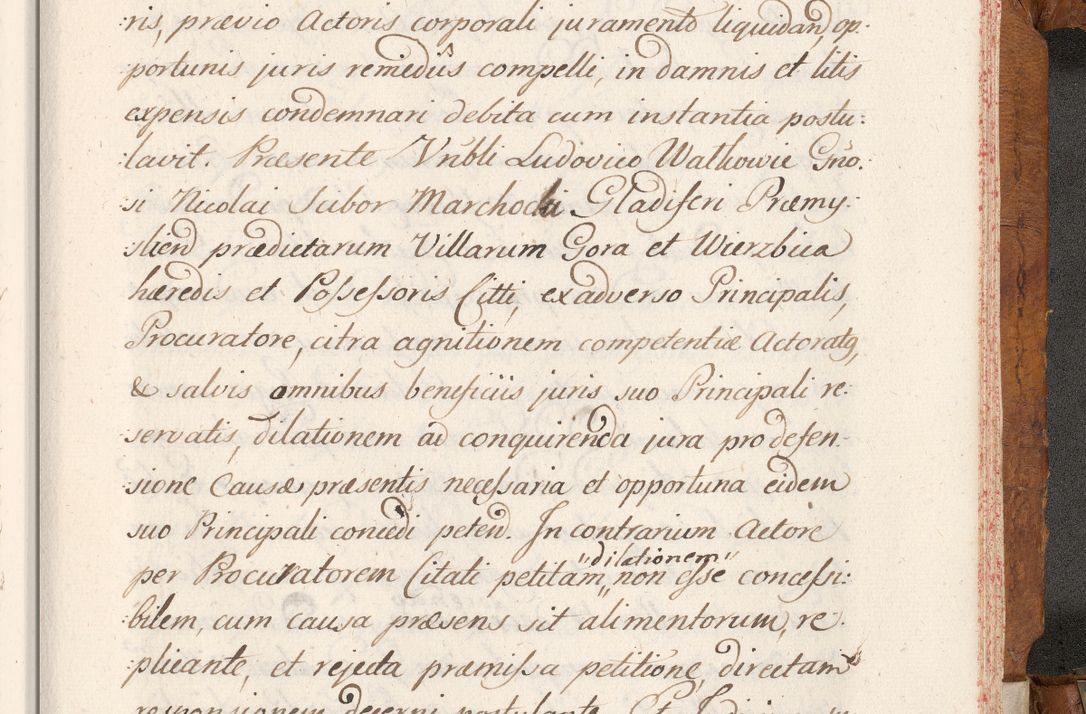 ris, prævio Actoris corporali juramento liquidand, op-
portunis juris remediis compelli, in damnis et litis
expensis condemnari debita cum instantia postu:
:lavit. Præsente Vnbli Ludovico Walkowic Gno:
:si Nicolai Scibor Marchocki Gladiferi Præmy:
:slien prædictarum Villarum Gora et Wierzbica
hæredis et Possessoris Citti, ex adverso Principalis,
Procuratore, citra agnitionem competentiæ Actoratq,
& salvis omnibus beneficiis juris suo Principali re:
:servatis, dilationem ad conquirenda jura pro defen-
:sione Causæ præsentis necessaria et opportuna eidem
suo Principali concedi peten. In contrarium Actore
per Procuratorem Citati petitam "dilationem" non esse concessi:
:bilem, cum causa præsens sit alimentorum, re:
:plicante, et rejecta præmissa petitione, directam
responsionem decerni postulante. Et